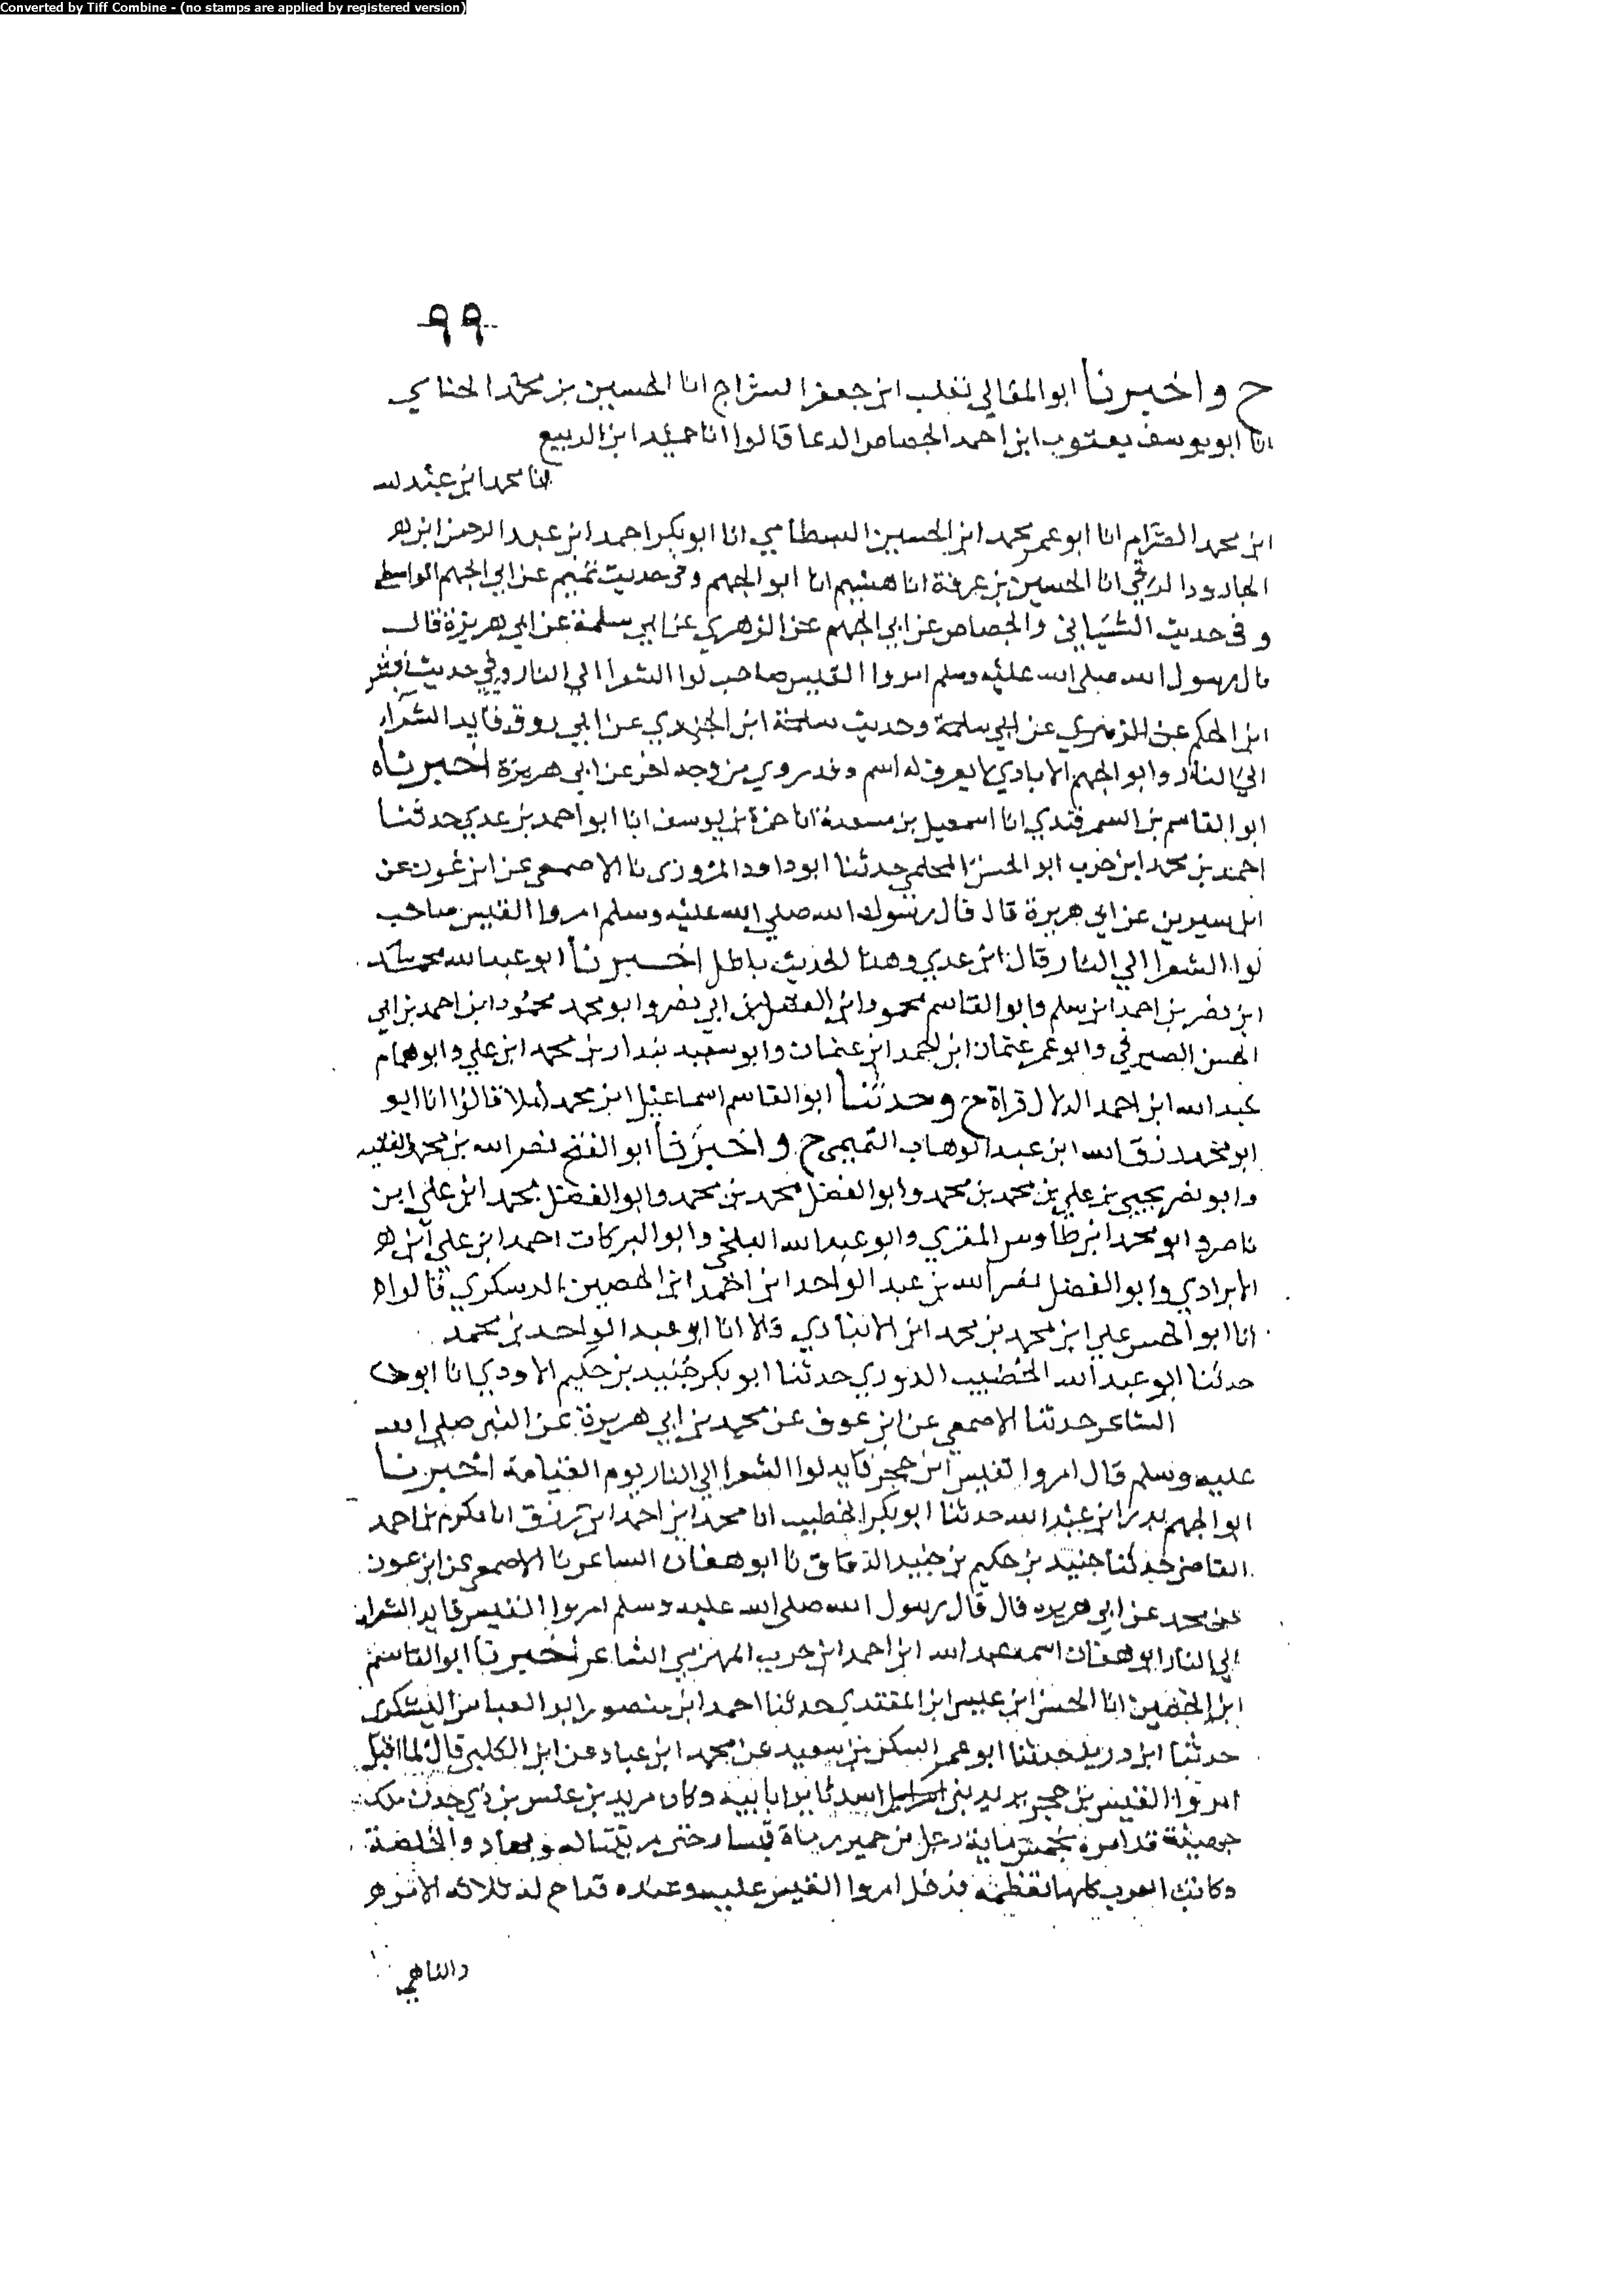 Converted by Tiff Combine - (no stamps are applied by registered version)
٩٩
ح واخبرنا ابو المقالي تغلب ابن جعفر السراج انا الحسين بن محمد الحناي
انا ابو يوسف يعقوب ابن احمد الجصاص الدعا قالوا انا حميد ابن الربيع
انا محمد ابن عبد لله
ابن محمد الصرام انا ابو عمر محمد ابن الحسين البسطامي انا ابو بكر احمد ابن عبد الرحمن ابن
الجارود الرقي انا الحسين بن عرفة انا هشيم انا ابو الجهم وفي حديث تميم عن ابي الجهم الواسطي
وفي حديث الشيباني والجصاص عن ابي الجهم عن الزهري عن ابي سلمة عن ابي هريرة قال
قال رسول الله صلى الله عليه وسلم امروا القيس صاحب لوا الشعرا الي النار وفي حديث
ابن الحكم عن الزهري عن ابي سلمة وحديث سلمة ابن عن ابي روق قايد الشعراء
الي النار وابو الجهم الايادي لا يعرف له اسم وقد روي من وجه اخر عن ابي هريرة اخبرناه
ابو القاسم بن السمرقندي انا اسمعيل بن مسعدة انا حمزة بن يوسف انا ابو احمد بن عدي حدثنا
احمد بن محمد ابن حرب ابو الحسن الملحمي حدثنا ابو داود المروزي نا الاصمعي عن ابن عون عن
ابن سيرين عن ابي هريرة قال قال رسول الله صلي الله عليه وسلم امروا القيس صاحب
لوا الشعرا الي النار قال ابن عدي وهذا الحديث باطل اخبرنا ابو عبد الله محمد
ابن نصر بن احمد ابن سلم وابو القاسم محمود ابن الفضل بن ابي نصر وابو محمد محمود ابن احمد بن ابي
الحسن الصيرفي وابو عمر عثمان ابن احمد ابن عثمان وابو سعيد بندار بن محمد ابن علي وابو همام
عبد الله ابن احمد الدلال قراة ح وحدثنا ابو القاسم اسماعيل ابن محمد املا قالوا انا ابو
ابو محمد رزق الله ابن عبد الوهاب التميمي ح واخبرنا ابو الفتح نصر الله بن محمد الفقيه
وابو نصر يحيي بن علي بن محمد بن محمد وابو الفضل محمد بن محمد وابو الفضل محمد ابن علي ابن
ناصر وابو محمد ابن طاوس المقري وابو عبد الله البلخي وابو البركات احمد ابن علي ابن
الابرادي وابو الفضل نصر الله بن عبد الواحد ابن احمد ابن الحصين الدسكري قالوا
انا ابو الحسن علي ابن محمد بن محمد ابن الانبادي قالا انا ابو عبد الواحد بن محمد
حدثنا ابو عبد الله الخطيب الدوري حدثنا ابو بكر جنيد بن حكيم الاودي انا ابو
الشاعر حدثنا الاصمعي عن ابن عوف عن محمد بن ابي هريرة عن النبي صلي الله
عليه وسلم قال امروا لقيس ابن حجر قايد لوا الشعرا الي النار يوم القيامة اخبرنا
ابو الجهم بدر ابن عبد الله حدثنا ابو بكر الخطيب انا محمد ابن احمد ابن رزق انا مكرم بن احمد
القاضي حدثنا جنيد بن حكيم بن جنيد الدقاق نا ابو هفان الساعر نا الاصمعي عن ابن عون
عن محمد عن ابي هريره قال قال رسول الله صلى الله عليه وسلم امروا القيس قايد الشعراء
الي النار ابو هفان اسمه عبد الله ابن احمد ابن حرب المهزمي الشاعر اخبرنا ابو القاسم
ابن الحصين انا الحسن ابن عيسى ابن المقتدي حدثنا احمد ابن منصور ابو العباس اليشكري
حدثنا ابن دريد حدثنا ابو عمر السكن بن سعيد عن محمد ابن عباد عن ابن الكلبي قال لما اقبل
امروا القيس بن حجر يريد بني اسد ثايرا بابيه وكان مريد بن علس بن ذي جدن ملك
جهينة قد امره بخمس ماية رجل من حمير رماة فسار حتى مر بتبالة والخلصة
وكانت العرب كلها تعظمه فدخل امروا القيس عليه وعنده قداح له ثلاثه الامر
والناهي